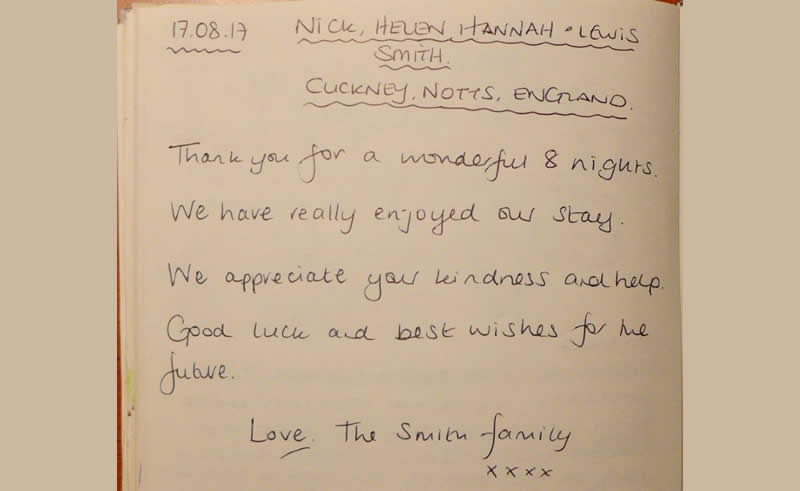 17.08.17 NICK, HELEN, HANNAH + LEWIS
SMITH.
CUCKNEY, NOTTS, ENGLAND.
Thank you for a wonderful 8 nights.
We have really enjoyed our stay.
We appreciate your kindness and help.
Good luck and best wishes for the
future.
Love. The Smith family
xxxx